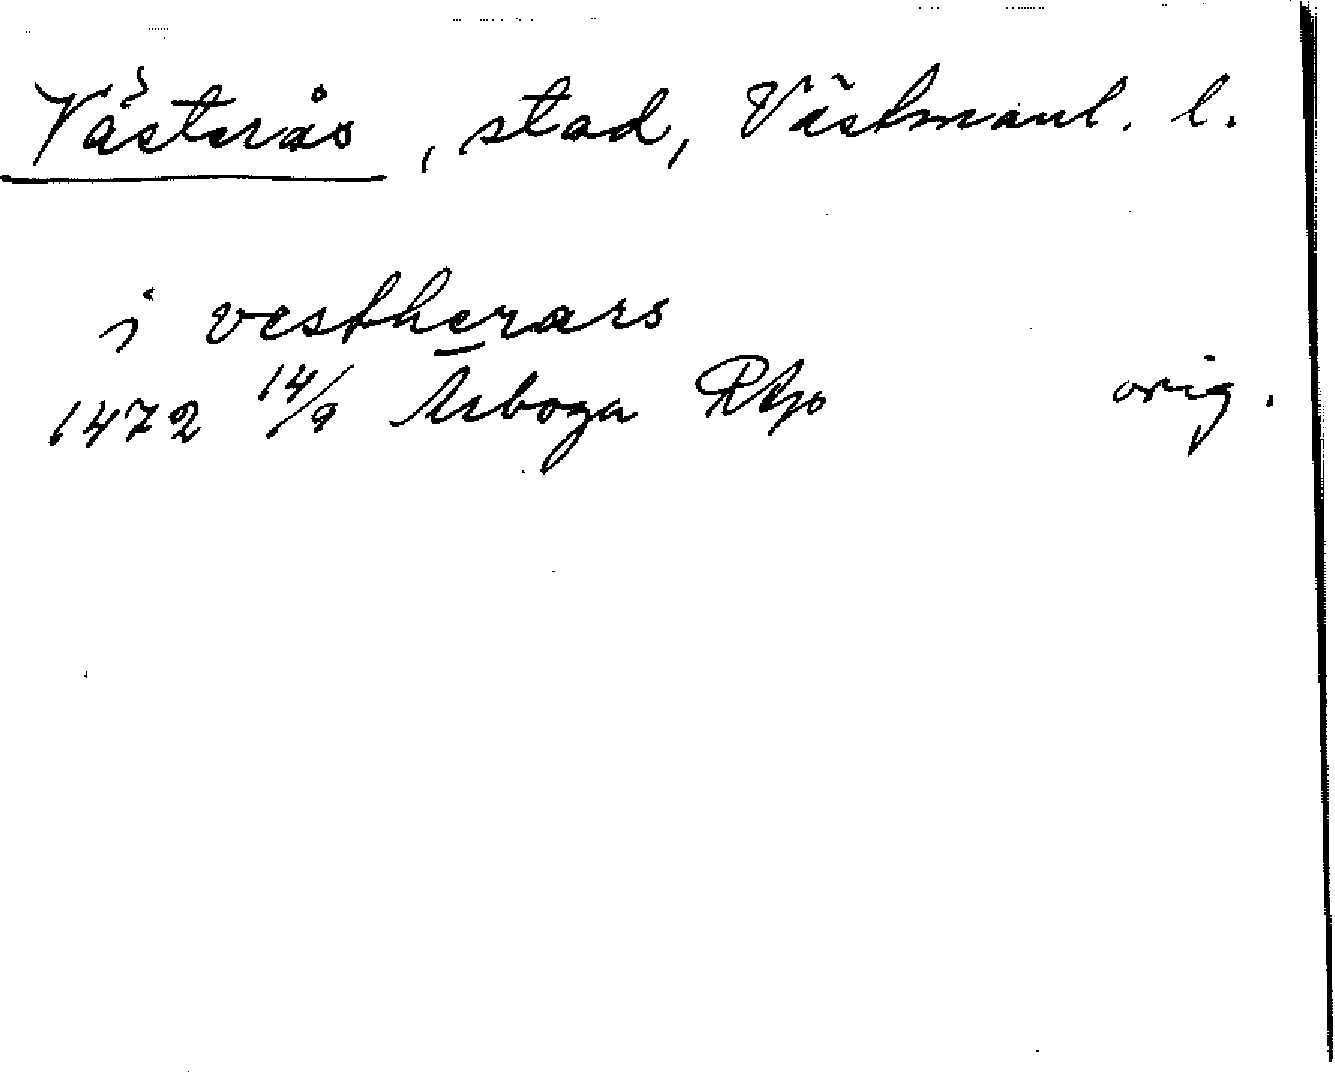 Västerås, stad, Västmanl. l.
i vestherars
1472 14/9 Arboga RAp orig.